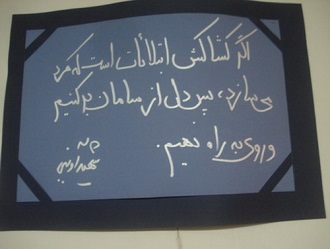 اگر کشاکش ابتلائات است که مرد
می‌سازد، پس دل از سامان برکنیم
و روی به راه نهیم.
شهید آوینی